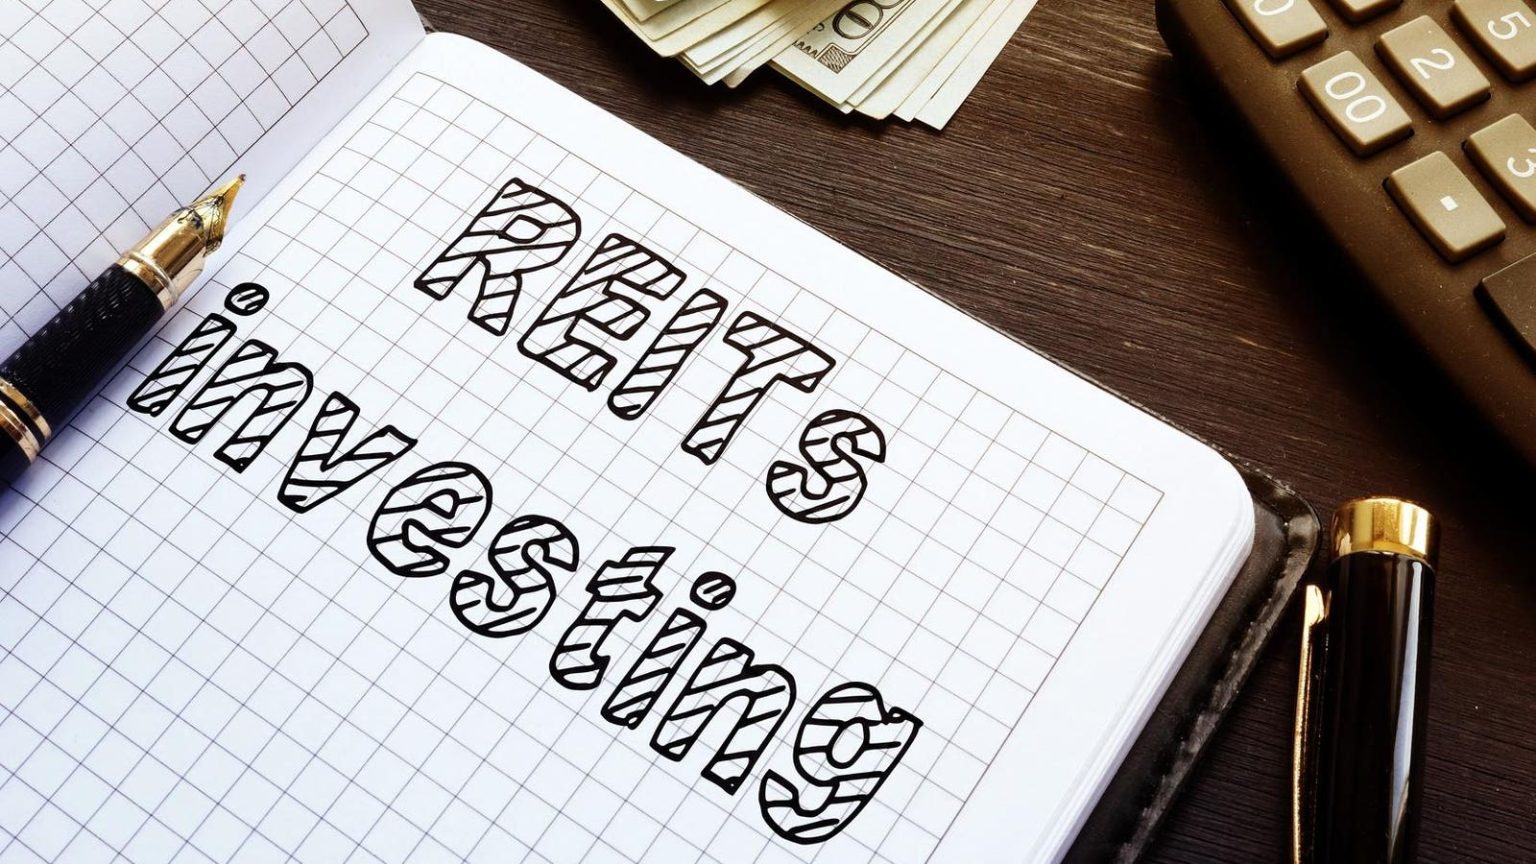 REITs
investing
00
2
5
.
3
0